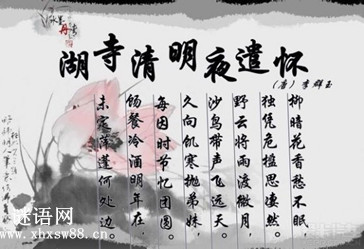 湖寺清明夜遣怀
(唐)李群玉
柳暗花香愁不眠,
独凭危槛思凄然。
野云将雨渡微月,
沙鸟带声飞远天。
久向饥寒抛弟妹,
每因时节忆团圆。
饧餐冷酒明年在,
未定萍蓬何处边。
谜语网
xhxsw88.cn